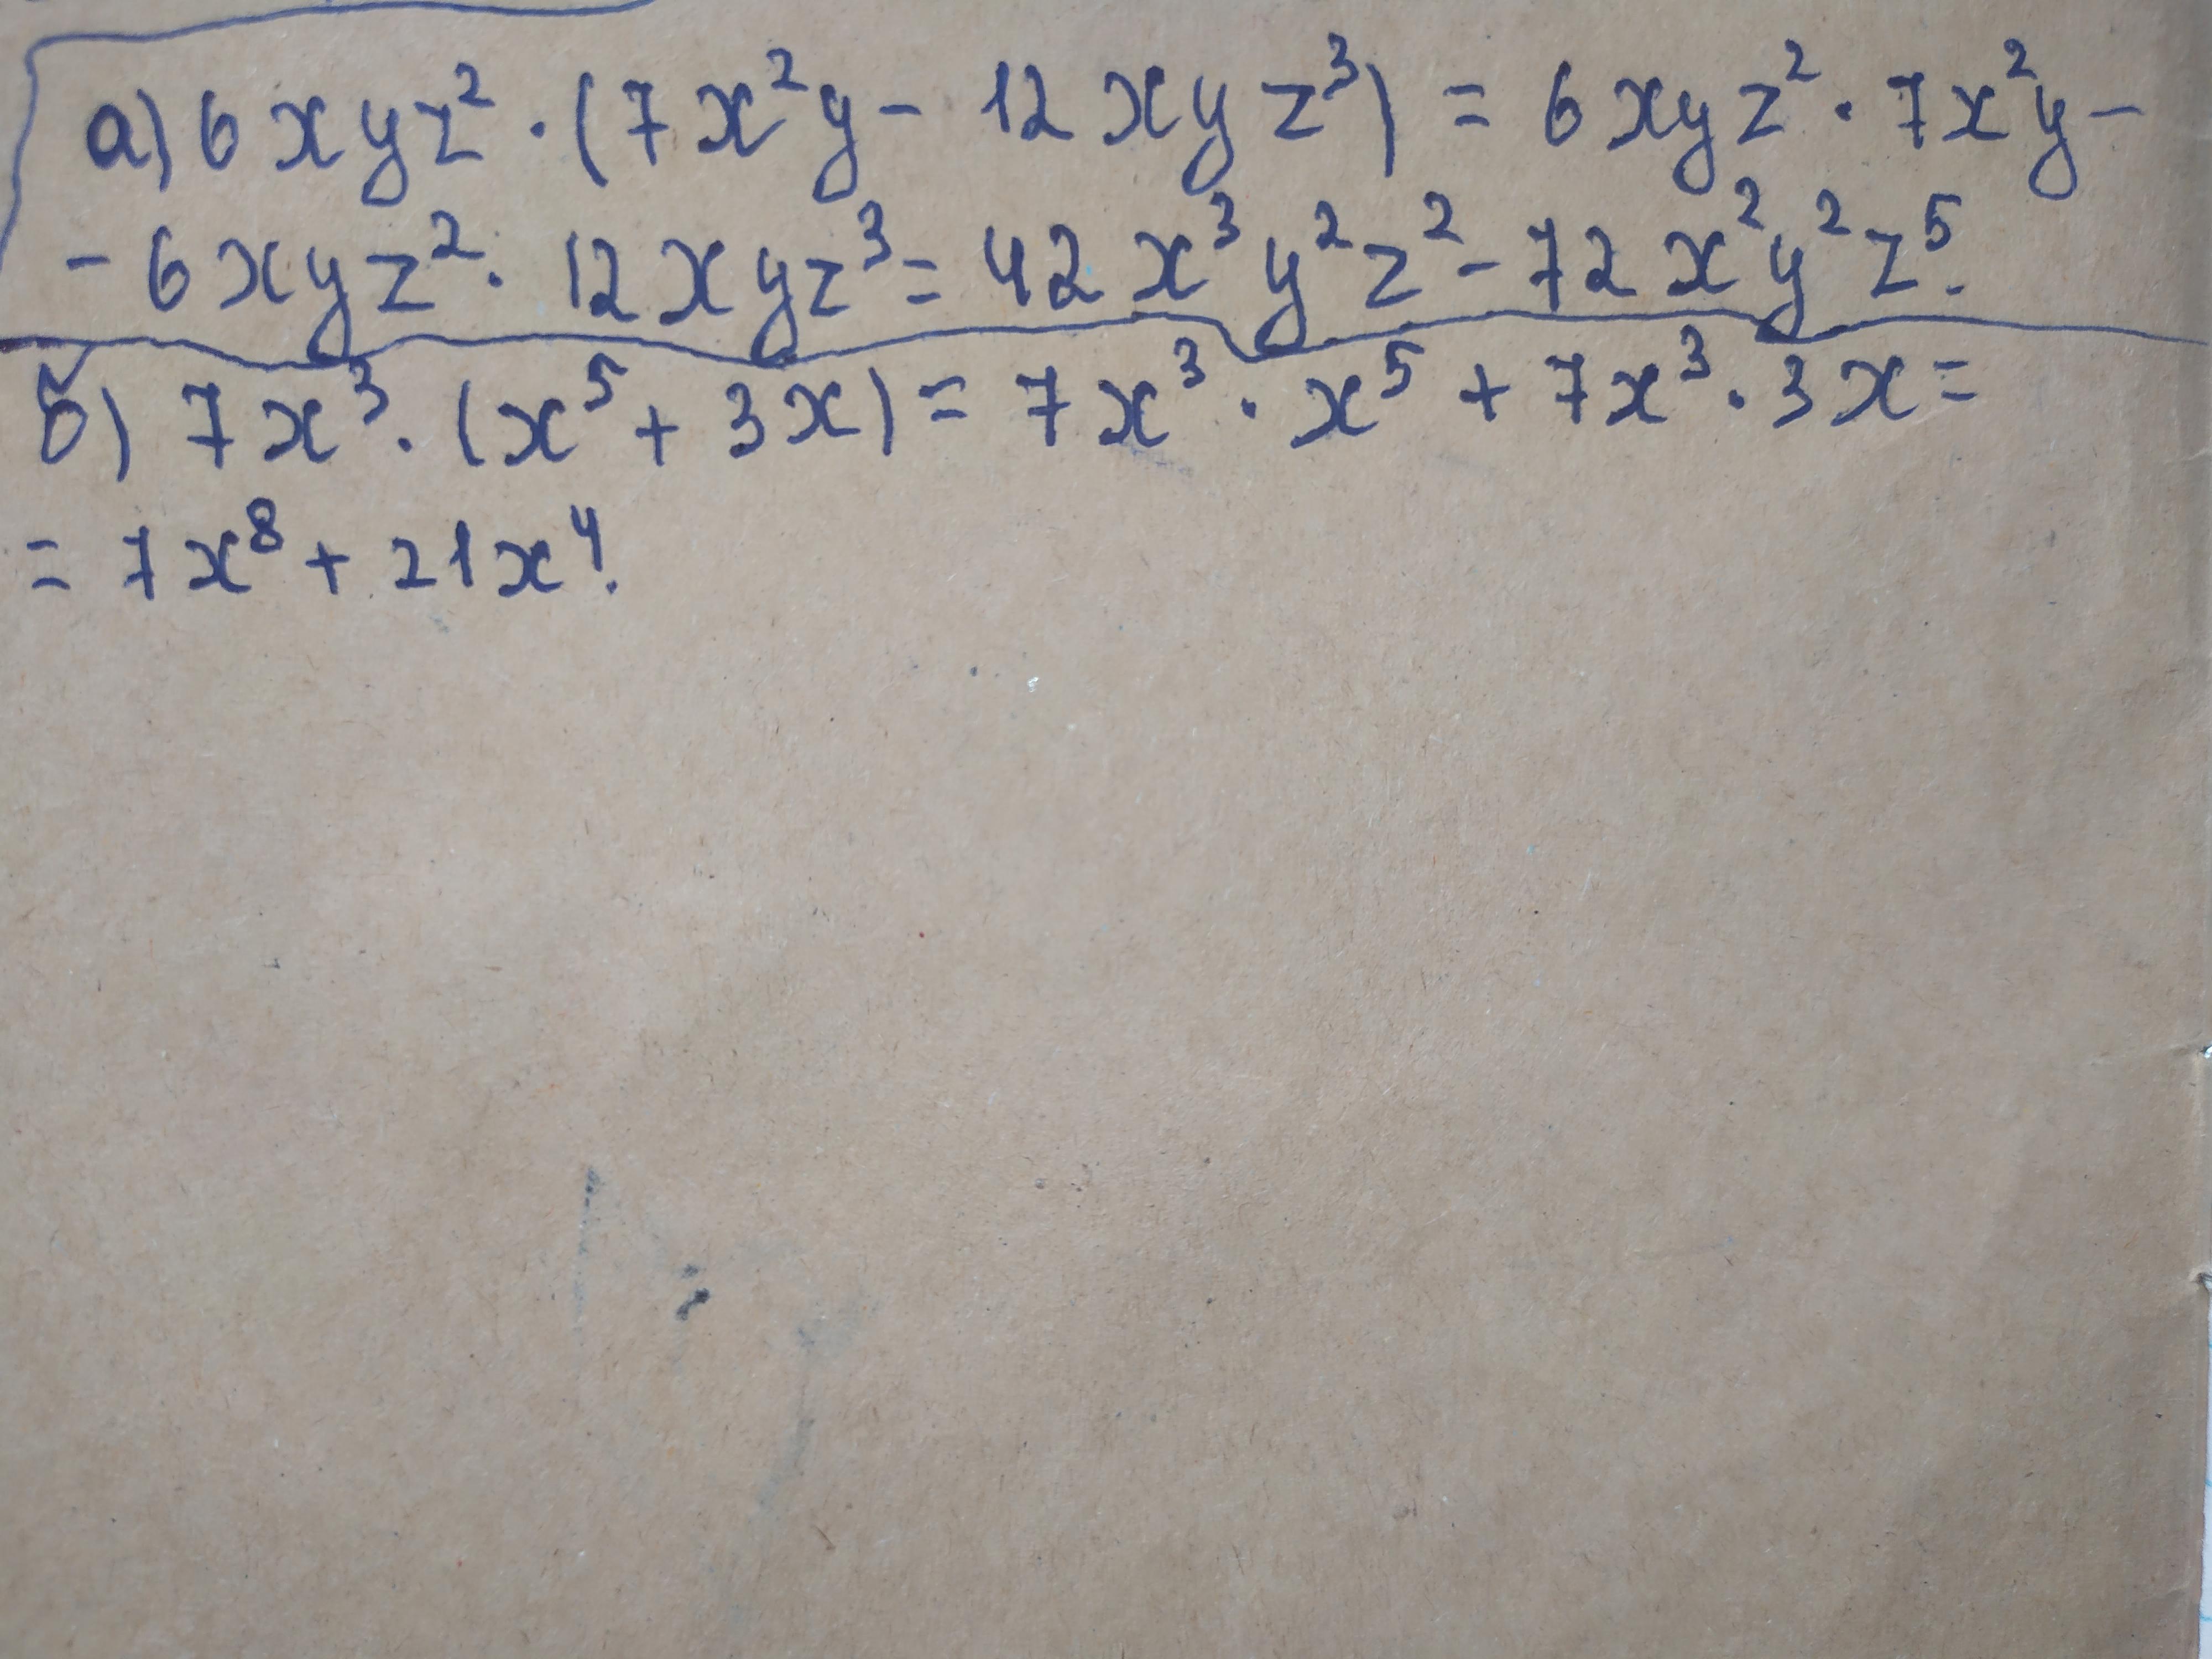 а) 6xyz² · (7x²y - 12xyz³) = 6xyz² · 7x²y -
- 6xyz² · 12xyz³ = 42x³y²z² - 72x²y²z⁵.
б) 7x³ · (x⁵ + 3x) = 7x³ · x⁵ + 7x³ · 3x =
= 7x⁸ + 21x⁴.